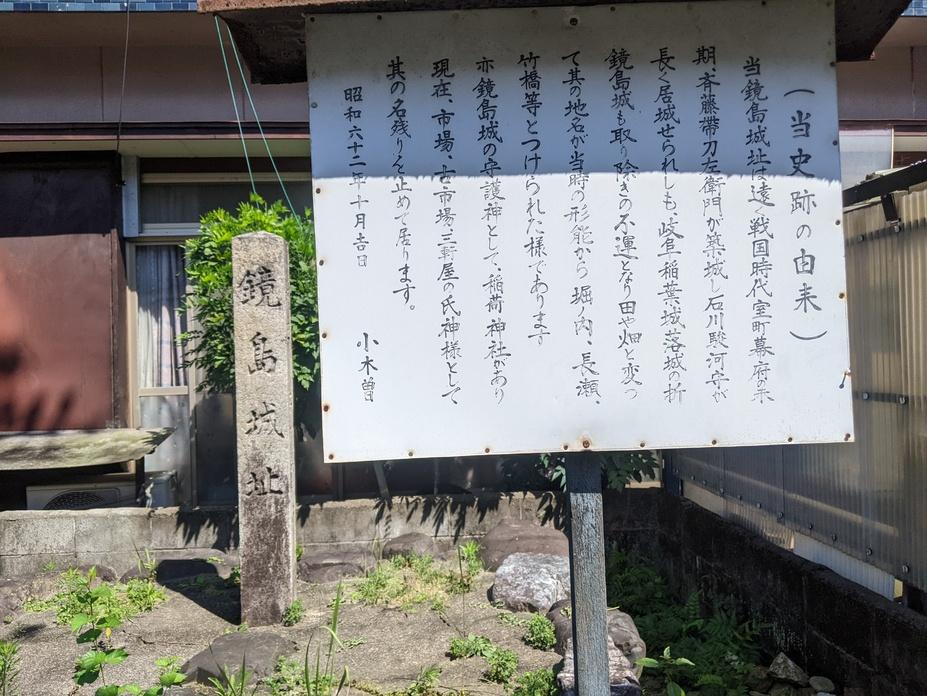 (当史跡の由来)
当鏡島城址は遠く戦国時代室町幕府の末
期、斉藤帯刀左衛門が築城し石川駿河守が
長く居城せられしも、岐阜稲葉城落城の折
鏡島城も取り除きの不運となり田や畑と変つ
て其の地名が当時の形能から堀ノ内、長瀬、
竹橋等とつけられた様であります
亦鏡島城の守護神として、稲荷神社があり
現在、市場、古市場、三軒屋の氏神様として
其の名残りを止めて居ります。
昭和六十二年十月吉日
小木曽
鏡島城址